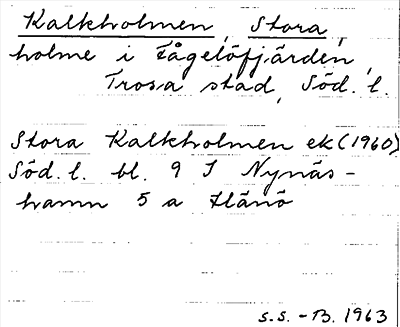 Kalkholmen, Stora,
holme i Fågelöfjärden,
Trosa stad, Söd. l.
Stora Kalkholmen ek (1960)
Söd. l. bl. 9 I Nynäs-
hamn 5 a Hånö
s.s. - B. 1963